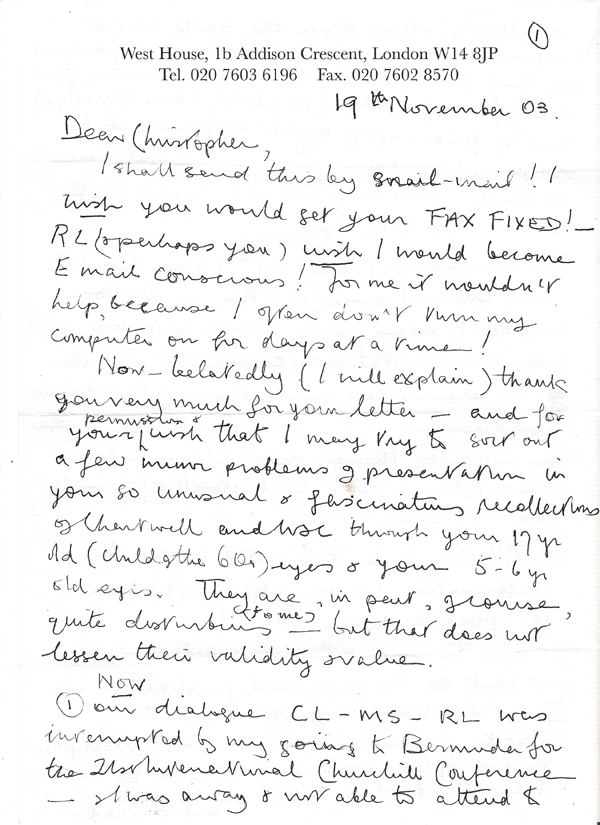 ①
West House, 1b Addison Crescent, London W14 8JP
Tel. 020 7603 6196 Fax. 020 7602 8570
19th November 03.
Dear Christopher,
I shall send this by snail-mail! I
wish you would get your FAX FIXED! –
RL (& perhaps you) wish I would become
E mail conscious! For me it wouldn't
help, because I often don't turn my
computer on for days at a time!
Now – belatedly (I will explain) thank
you very much for your letter – and for
permission &
your wish that I may try to sort out
a few minor problems of presentation in
your so unusual & fascinating recollections
of Chartwell and WSC through your 17 yr
old (child of the 60s) eyes & your 5-6 yr
old eyes. They are, in part, of course,
(to me)
quite disturbing – but that does not
lessen their validity & value.
Now
① our dialogue CL – MS – RL was
interrupted by my going to Bermuda for
the 21st International Churchill Conference
– I was away & not able to attend to